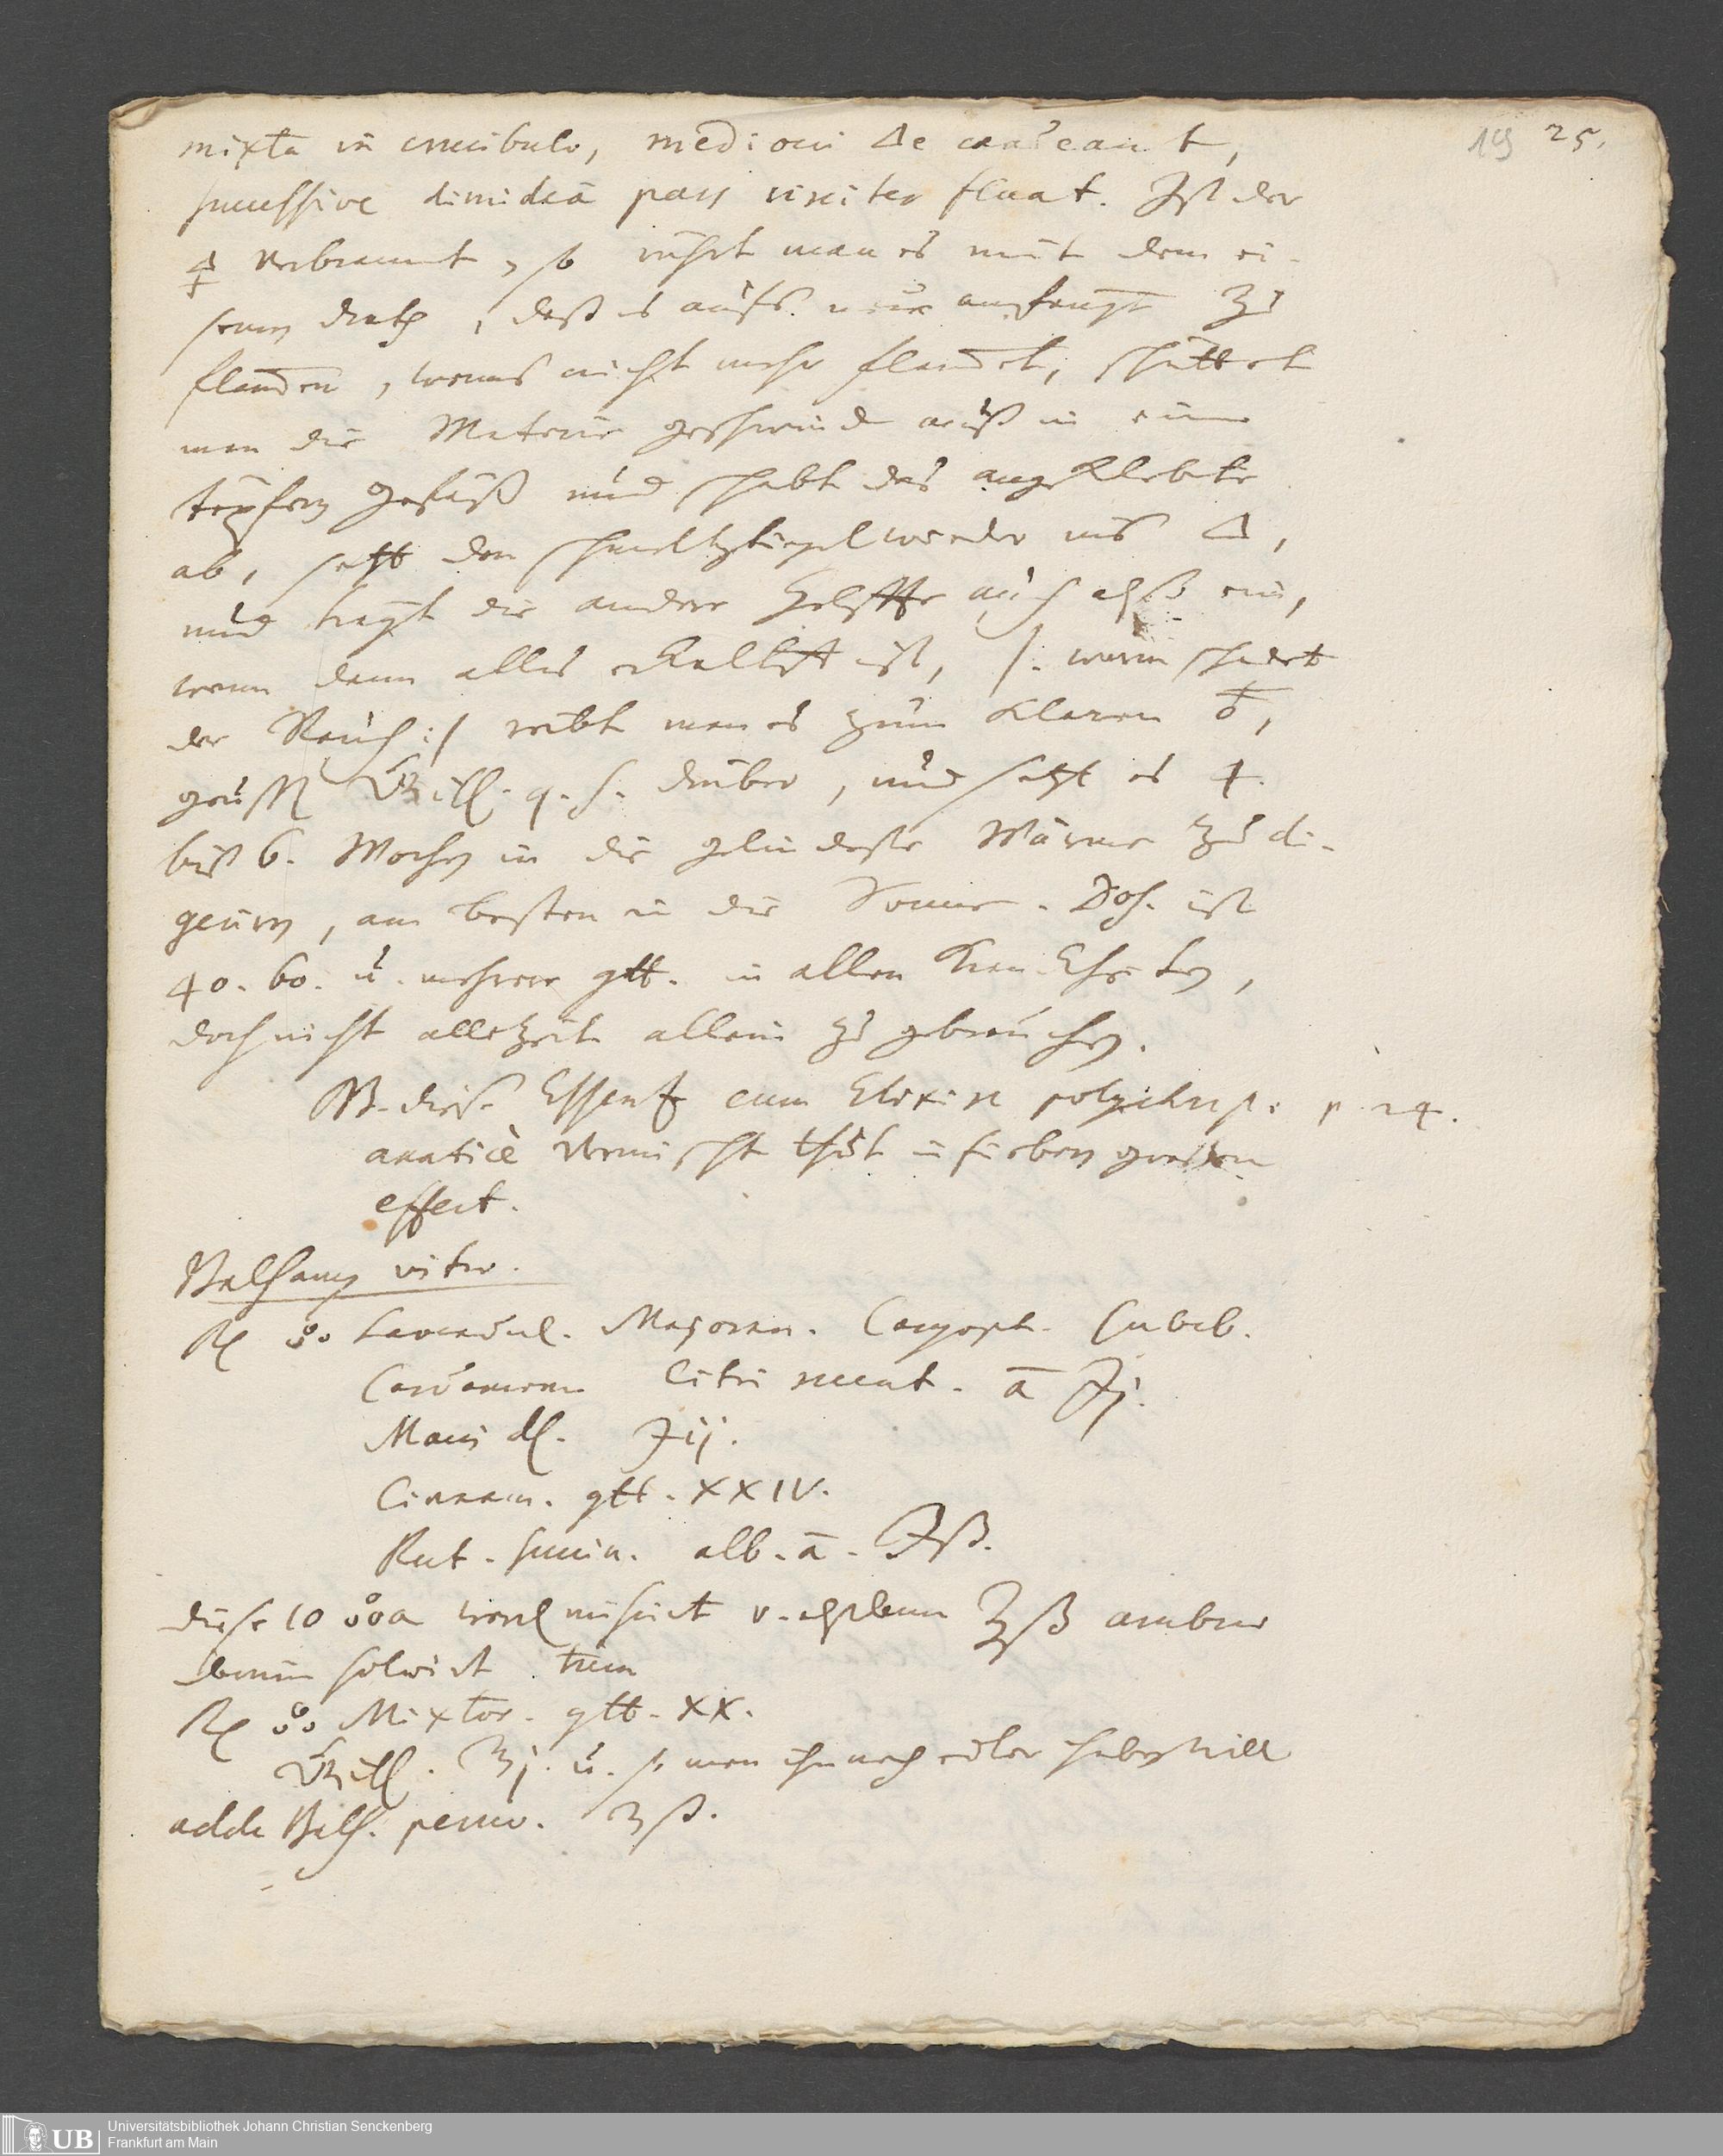 19 25.
mixta in crucibulo, mediocri 🜂e candeant,
successive dimidia pars injiciter fluat. Ist der
🜍 verbrannt, so rührt man es mit dem ei-
sern drath, daß es aufs neue anfangt zu
flammen, wenns nicht mehr flammet, schüttet
man die Materie geschwind auß in einn
töpfern gefäß und schabt das angeklebte
ab, setzt den schmeltztiegel wieder ins 🜂,
und tragt die andere Helffte auch also ein,
wenn denn alles erkaltet ist, /: worin schadet
der Rauch :/ reibt man es zum klaren
geust Vitill. q. s. drüber, und setzt es 4.
biß 6. Wochen in die gelindeste Wärme zu di-
geriren, am besten in die Sonne. Dos. ist
40. 60. u. mehrere gtt. in allen Kranckheiten,
doch nicht allezeit allein zu gebrauchen.
NB. diese Essentz cum Elixire polychrest. p. 24.
anaticè vermischt thut in fiebern grossen
effect.
Balsamus vitae.
℞ Lavendul. Majoran. Caryoph. Cubeb.
Cardamom. Citri ment. ā ʒj.
Macis dest. ʒij.
Cinnam. gtt. XXIV.
Rut. succin. alb. ā. ʒß.
diese 10 werden miscirt v. alsdann ʒß ambrae
darinn solvirt tum
℞ Mixtor. gtt. XX.
℥j. u. so man ihn noch edler haben will
adde Bals. peruv. ʒß.
Universitätsbibliothek Johann Christian Senckenberg
Frankfurt am Main
UB